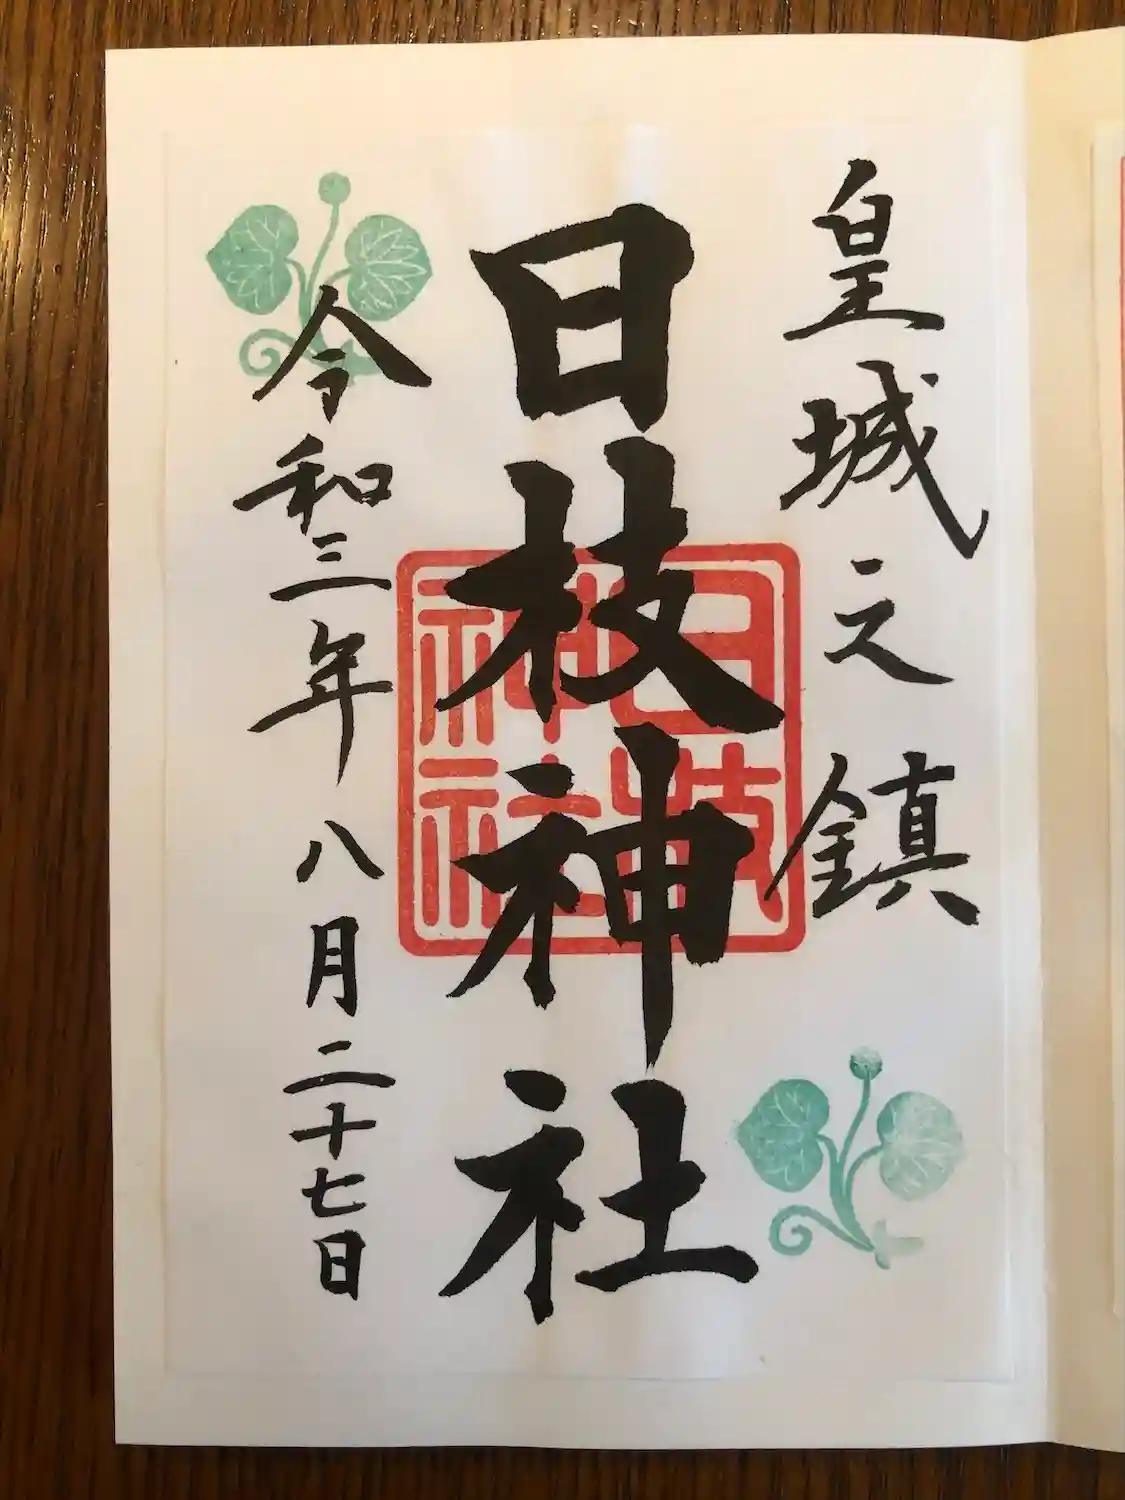 皇城之鎮
日枝神社
日枝
神社
令和三年八月二十七日